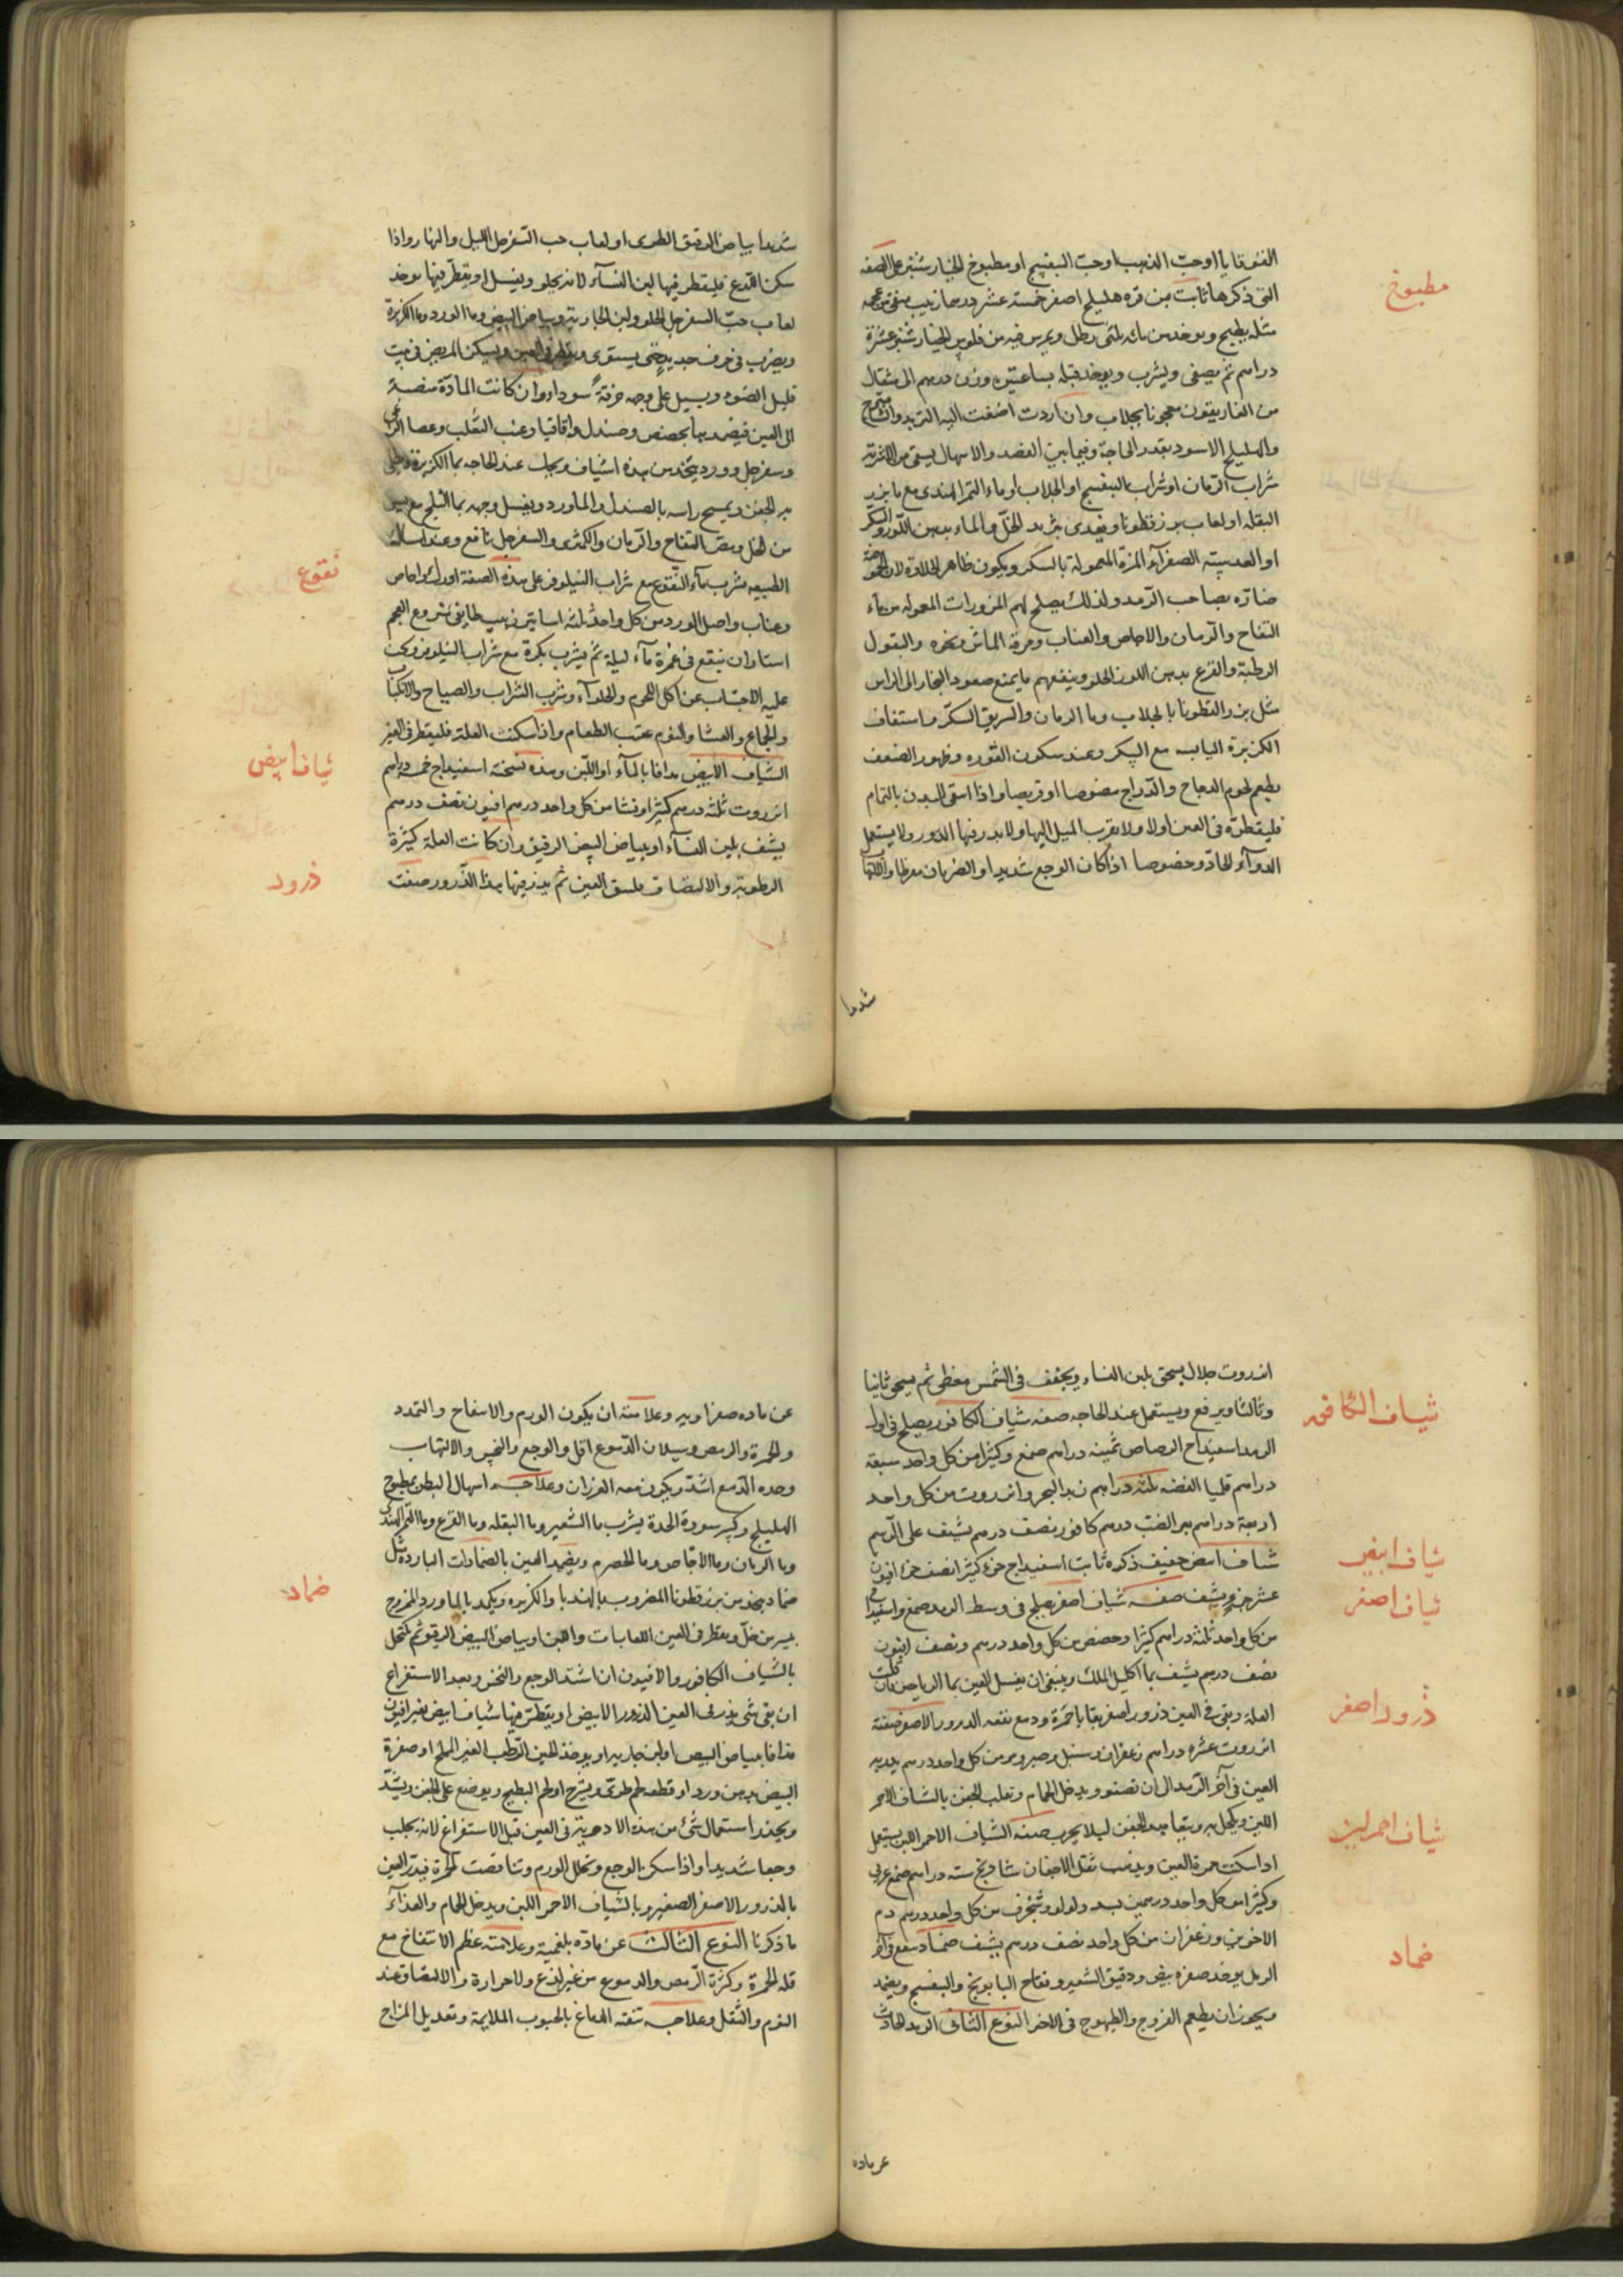 القوقايا او حبّ الذهب او حبّ البنفسج او مطبوخ الخيارشنبر على الصفه
مطبوخ
التى ذكرها ثابت بن قره هليلج اصفر خمسة عشر درهما زبيب منقى من عجمه
مثله يطبخ ويوخذ من مائه ثلثى رطل ويمرس فيه من فلوس الخيارشنبر عشرة
دراهم ثم يصفى ويشرب ويوخذ قبله بساعتين وزن درهم الى مثقال
من الغاريقون معجونا بجلاب وان اردت اضفت اليه التربد
والهليلج الاسود بقدر الحاجة وفيما بين الفصد والاسهال يسقى من الاشربة
شراب الرمان او شراب البنفسج او الجلاب او ماء التمر الهندى مع ما بزر
البقله او لعاب بزر قطونا ويغذى بثريد الخلّ والماء بدهن اللوز والسكر
او العدسية الصفرآء المزة المعمولة بالسكر ويكون ظاهر الحلاوة لان الحموضة
ضارّه بصاحب الرمد ولذلك يصلح لهم المزورات المعموله من ماء
التفاح والرمان والاجاص والعناب ومرقة الماش ونحوه والبقول
الرطبة والقرع بدهن اللوز الحلو وينفعهم ما يمنع صعود البخار الى الراس
مثل بزر القطونا بالجلاب وما الرمان والسويق السكر واستفاف
الكزبرة اليابسه مع السكر وعند سكون الفوره وظهور الضعف
يطعم لحوم الدجاج والدراج مصوصا او قريصا واذا انقى البدن بالتمام
فليقطر فى العين اولا ولا يقرب الميل اليها ولا يذر فيها الذرور ولا يستعمل
الدوآء الحاد وخصوصا اذا كان الوجع شديدا او الضربان مفرطا والالتهاب
شديدا
شديدا بياض الرقيق الطرى او لعاب حب السفرجل الليل والنهار واذا
سكن اللذع فليقطر فيها لبن النسآء لانه يجلو ويغسل او يقطر فيها يوخذ
لعاب حبّ السفرجل الحلو ولبن الجارية وبياض البيض وما الورد وما الكزبرة
ويضرب فى خرف جديد حتى يستوى ويقطر فى العين ويسكن المريض فى بيت
قليل الضوء ويسبل على وجهه خرقةً سوداء وان كانت المادة منصبة
الى العين فيضمد بها بحضض وصندل واقاقيا وعنب الثعلب وعصا الراعى
وسفرجل وورد يتخذ من هذه اشياف ويحك عند الحاجه بما الكزبرة ويطلى
به الجفن ويمسح راسه بالصندل والماورد ويغسل وجهه بما الثلج مع يسير
من الخل ومصّ التفاح والرمان والكمثرى والسفرجل نافع وعند امساك
نقوع
الطبيعه يشرب مآء النقوع مع شراب النيلوفر على هذه الصفة اورك واجاص
وعناب واصل الورد من كل واحد ثلثه اساتير زبيب طايفى منزوع العجم
استاران ينقع فى غمرة مآء ليلة ثم يشرب بكرة مع شراب النيلوفر ويجب
عليه الاجتناب عن اكل اللحوم والحلوآء وشرب الشراب والصياح والانكباب
والجماع والعشا والنوم عقيب الطعام واذا سكنت العلة فليقطر فى العين
شياف ابيض
الشياف الابيض مدافا بالمآء او اللبن وهذه نسخته اسفيداج خمسة دراهم
انزروت ثلثه درهم كثيرا ونشا من كل واحد درهم افيون نصف درهم
يشيف بلبن النسآء او ببياض البيض الرقيق وان كانت العلة كثيرة
الرطوبة والالتصاق ملصق العين ثم يذر فيها بهذا الذرور صفته
ذرور
انزروت جلال يسحق بلبن النساء ويجفف فى الشمس مغطى ثم يسحق ثانيا
شياف الكافور
وثالثا ويرفع ويستعمل عند الحاجه صفه شياف الكافور يصلح فى اول
الرمد اسفيداج الرصاص ثمينه دراهم صمغ وكثيرا من كل واحد سبعة
دراهم قليميا الفضه ثلثه دراهم زبد البحر وانزروت من كل واحد
اربعة دراهم درهم كافور نصف درهم يشيف على الرسم
شياف ابيض
شياف ابيض خفيف ذكره ثابت اسفيداج جزء كثيرا نصف جزء افيون
شياف اصفر
عشر جزء ويشيف صفه شياف اصفر يصلح فى وسط الرمد صمغ واسفيداج
من كل واحد ثلثه دراهم كثيرا وحضض من كل واحد درهم ونصف افيون
نصف درهم يشيف بما اكليل الملك وينبغى ان يغسل العين بما الرياحين فان
ذرور اصفر
العلة وبقى فى العين ذرور اصفر بقايا حمرة ودمع نفعه الذرور الاصفر صفته
انزروت عشره دراهم زعفران وسنبل وصبر ومر من كل واحد درهم يذر به
العين فى آخر الرمد الى ان تصفو ويدخل الحمام ويقلب الجفن بالشياف الاحمر
شياف احمر لين
اللين ويكحل به ويتعاهد الجفن ليلا يجرب صفه الشياف الاحمر اللين يستعمل
اذا سكنت حمرة العين ويذهب ثقل الاجفان شادنج سته دراهم صمغ عربى
وكثيرا من كل واحد درهمين بسد ولولو وشنجرف من كل واحد درهم دم
الاخوين وزعفران من كل واحد نصف درهم يشيف ضماد ينفع فى آخر
ضماد
الرمد يوخذ صفره بيض ودقيق الشعير وتفاح البابونج والبنفسج ويضمد
ويجوز ان يطعم الفروج والطيهوج فى الاخر النوع الثانى الرمد الحادث
عن ماده
عن ماده صفراويه وعلامته ان يكون الورم والانتفاخ والتمدد
والحمرة والرمص وسيلان الدموع اقل والوجع والنخس والالتهاب
وحده الدمع اشد ويكون معه الغرزان وعلاجه اسهال البطن بمطبوخ
الهليلج وكسر سورة الحدة بشرب ما الشعير وما البقله وما القرع وما التمر الهندى
وما الرمان وما الاجاص وما الحصرم ويضمد العين بالضمادات البارده مثل
ضماد
ضماد يتخذ من بزر قطونا المضروب بالهندبا والكزبره ويكمد بالماورد الممزوج
بيسير من خلّ ويقطر فى العين اللعابات واللبن وبياض البيض الرقيق ثم يكتحل
بالشياف الكافور والافيون ان اشتد الوجع والنخس وبعد الاستفراغ
ان بقى شى يذر فى العين الذرور الابيض او يقطر فيها شياف ابيض بغير افيون
مذافا ببياض البيض او لبن جاريه او يوخذ الجبن الرطب الغير المملح او صفرة
البيض بدهن ورد او قطعه لحم طرى ويشرح او لحم البطيخ ويوضع على الجفن ويشد
ويحذر استعمال شئ من هذه الادوية فى العين قبل الاستفراغ لانه يجلب
وجعا شديدا واذا سكن الوجع وتحلل الورم وتناقصت الحمرة فيذر العين
بالذرور الاصفر الصغير وبالشياف الاحمر اللين ويدخل الحمام والغذآء
ما ذكرنا النوع الثالث عن مادّه بلغمية وعلامته عظم الانتفاخ مع
قله الحمرة وكثرة الرمص والدموع من غير لذع ولا حرارة والالتصاق عند
النوم والثقل وعلاجه تنقية الدماغ بالحبوب الملايمة وتعديل المزاج